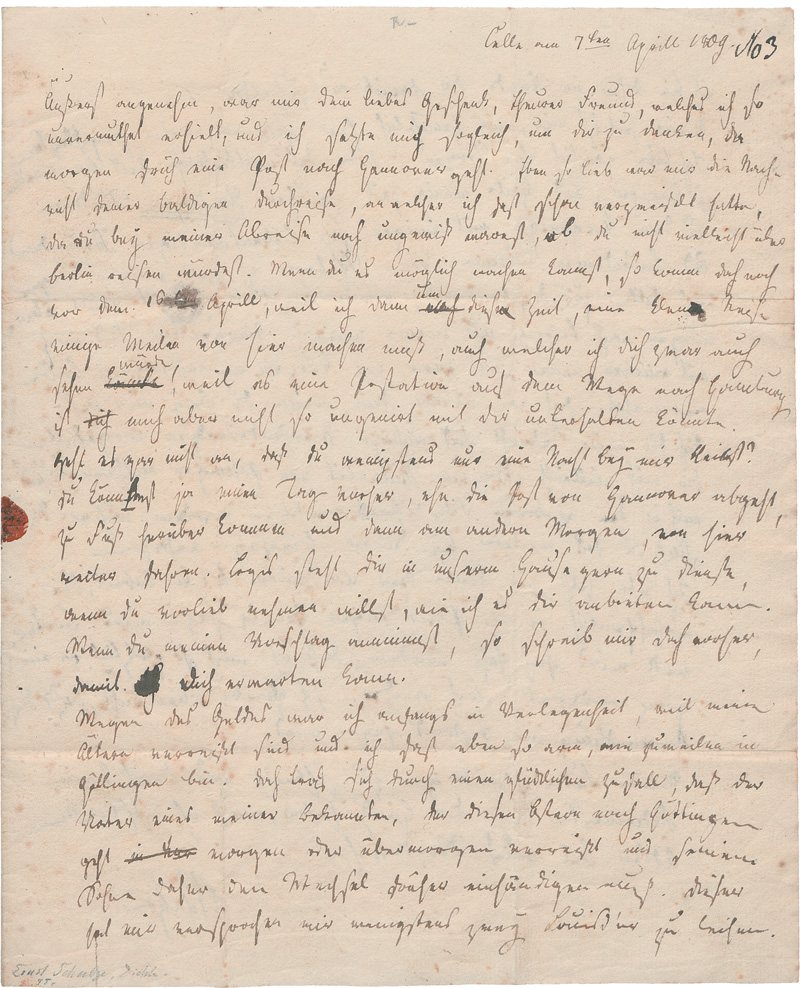 Celle am 7ten Aprill 1809. No 3
Äußerst angenehm, war mir dein liebes Geschenk, theurer Freund, welches ich so
unvermuthet erhielt, und ich setzte mich sogleich, um dir zu danken, da
morgen früh eine Post nach Hannover geht. Eben so lieb war mir die Nach-
richt deiner baldigen Durchreise, an welcher ich fast schon verzweifelt hatte,
da du bey meiner Abreise noch ungewiß warest, ob du nicht vielleicht über
Berlin reisen würdest. Wenn du es möglich machen kannst, so komm doch noch
vor dem 16 Aprill, weil ich dann um diese Zeit, eine kleine Reise
einige Meilen von hier machen muß, auf welcher ich dich zwar auch
würde
sehen könnte, weil es eine Poststation auf dem Wege nach Hamburg
ist, mich aber nicht so ungenirt mit dir unterhalten könnte.
Geht es gar nicht an, daß du wenigstens nur eine Nacht bey mir bleibst?
du könntest ja einen Tag vorher, ehe die Post von Hannover abgeht,
zu Fuß herüber kommen und dann am andern Morgen, von hier
weiter fahren. Logis steht dir in unserm Hause gern zu Dienste,
wenn du vorlieb nehmen willst, wie ich es dir anbieten kann.
Wenn du meinen Vorschlag annimmst, so schreib mir doch vorher,
damit ich dich erwarten kann.
Wegen des Geldes war ich anfangs in Verlegenheit, weil meine
Ältern verreist sind und ich fast eben so arm, wie zuweilen in
Göttingen bin. doch traf sich durch einen glücklichen Zufall, daß der
Vater eines meiner Bekannten, der diesen Ostern nach Göttingen
geht morgen oder übermorgen verreist und seinem
Sohne daher den Wechsel früher einhändigen muß. Dieser
hat mir versprochen mir wenigstens zwey Louisd'or zu leihen.
Ernst Schulze, Dichter.